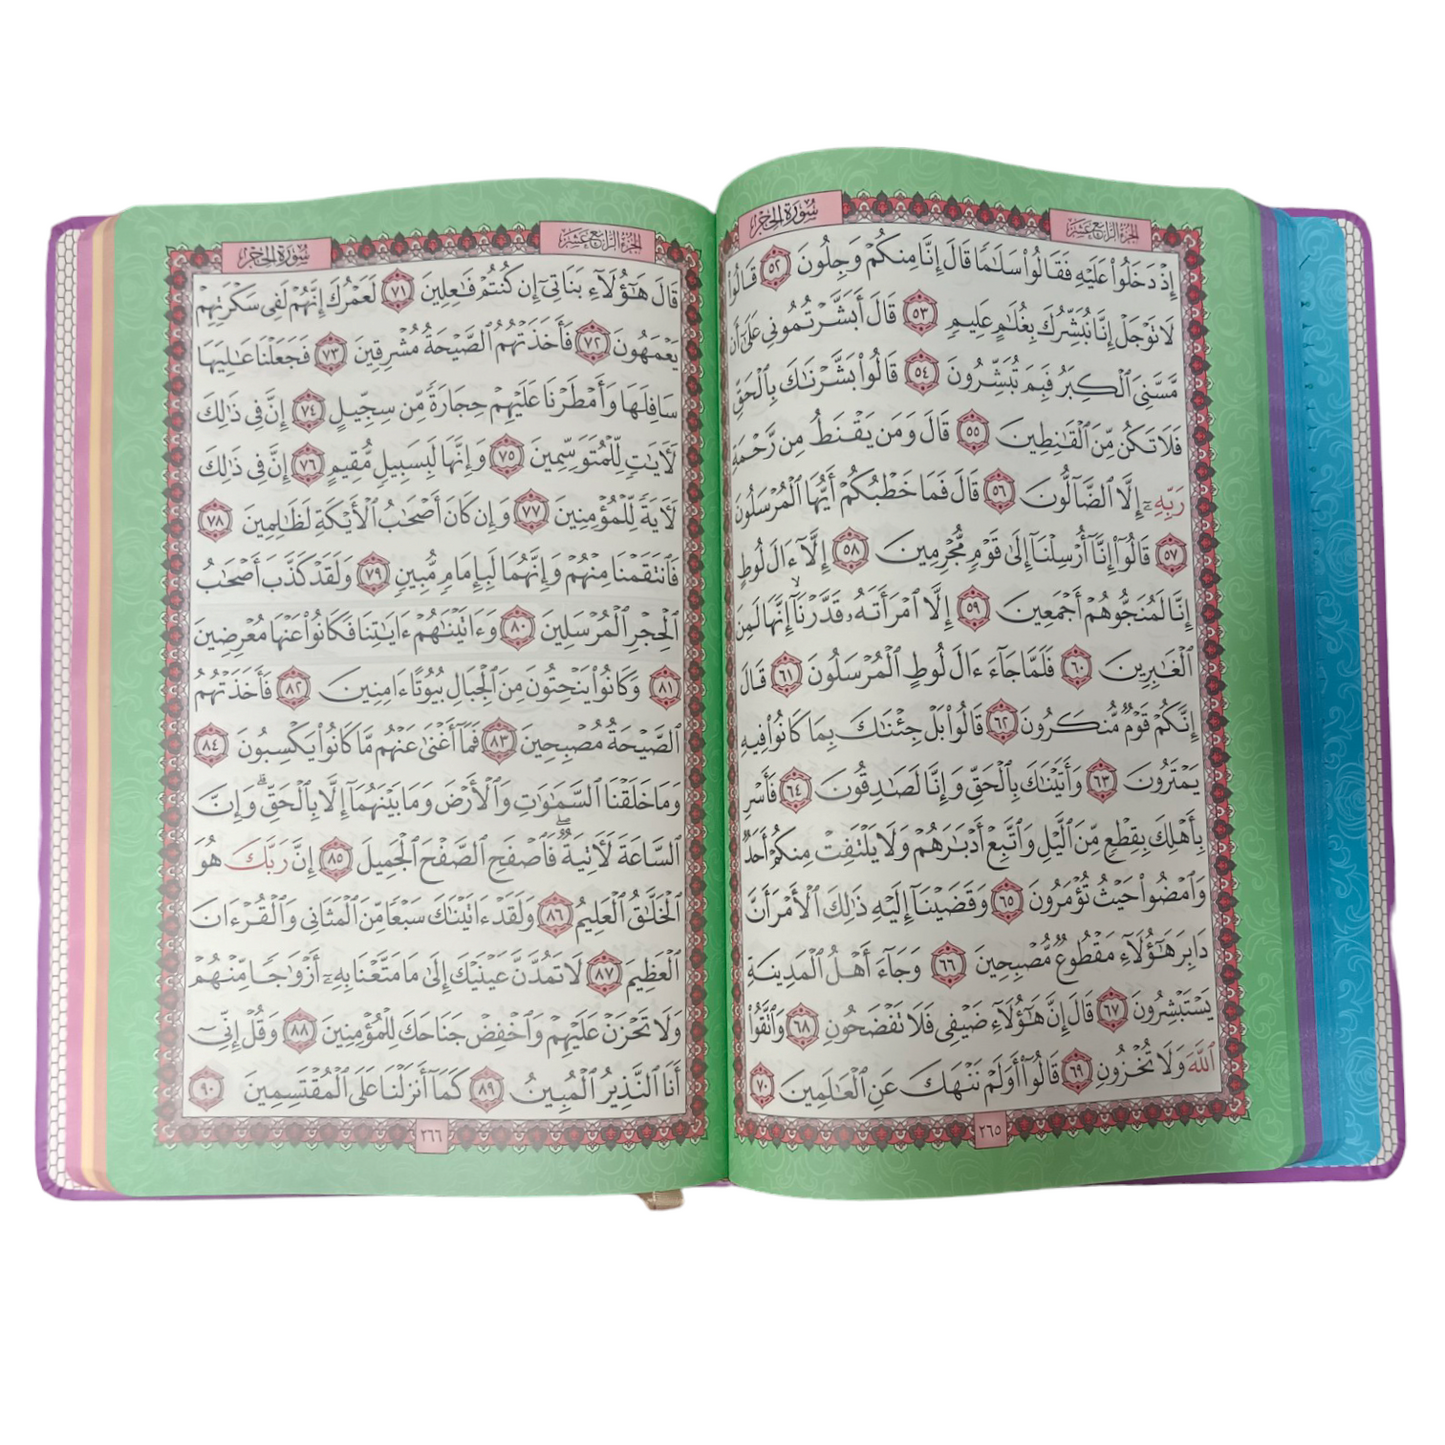 سُورَةُ الحِجْرِ
الجُزْءُ الرَّابِعَ عَشَرَ
إِذْ دَخَلُوا۟ عَلَيْهِ فَقَالُوا۟ سَلَـٰمًا قَالَ إِنَّا مِنكُمْ وَجِلُونَ ٥٢ قَالُوا۟
لَا تَوْجَلْ إِنَّا نُبَشِّرُكَ بِغُلَـٰمٍ عَلِيمٍ ٥٣ قَالَ أَبَشَّرْتُمُونِى عَلَىٰٓ أَن
مَّسَّنِىَ ٱلْكِبَرُ فَبِمَ تُبَشِّرُونَ ٥٤ قَالُوا۟ بَشَّرْنَـٰكَ بِٱلْحَقِّ
فَلَا تَكُن مِّنَ ٱلْقَـٰنِطِينَ ٥٥ قَالَ وَمَن يَقْنَطُ مِن رَّحْمَةِ
رَبِّهِۦٓ إِلَّا ٱلضَّآلُّونَ ٥٦ قَالَ فَمَا خَطْبُكُمْ أَيُّهَا ٱلْمُرْسَلُونَ
٥٧ قَالُوٓا۟ إِنَّآ أُرْسِلْنَآ إِلَىٰ قَوْمٍ مُّجْرِمِينَ ٥٨ إِلَّآ ءَالَ لُوطٍ
إِنَّا لَمُنَجُّوهُمْ أَجْمَعِينَ ٥٩ إِلَّا ٱمْرَأَتَهُۥ قَدَّرْنَآ ۙ إِنَّهَا لَمِنَ
ٱلْغَـٰبِرِينَ ٦٠ فَلَمَّا جَآءَ ءَالَ لُوطٍ ٱلْمُرْسَلُونَ ٦١ قَالَ
إِنَّكُمْ قَوْمٌ مُّنكَرُونَ ٦٢ قَالُوا۟ بَلْ جِئْنَـٰكَ بِمَا كَانُوا۟ فِيهِ
يَمْتَرُونَ ٦٣ وَأَتَيْنَـٰكَ بِٱلْحَقِّ وَإِنَّا لَصَـٰدِقُونَ ٦٤ فَأَسْرِ
بِأَهْلِكَ بِقِطْعٍ مِّنَ ٱلَّيْلِ وَٱتَّبِعْ أَدْبَـٰرَهُمْ وَلَا يَلْتَفِتْ مِنكُمْ أَحَدٌ
وَٱمْضُوا۟ حَيْثُ تُؤْمَرُونَ ٦٥ وَقَضَيْنَآ إِلَيْهِ ذَٰلِكَ ٱلْأَمْرَ أَنَّ
دَابِرَ هَـٰٓؤُلَآءِ مَقْطُوعٌ مُّصْبِحِينَ ٦٦ وَجَآءَ أَهْلُ ٱلْمَدِينَةِ
يَسْتَبْشِرُونَ ٦٧ قَالَ إِنَّ هَـٰٓؤُلَآءِ ضَيْفِى فَلَا تَفْضَحُونِ ٦٨ وَٱتَّقُوا۟
ٱللَّهَ وَلَا تُخْزُونِ ٦٩ قَالُوٓا۟ أَوَلَمْ نَنْهَكَ عَنِ ٱلْعَـٰلَمِينَ ٧٠
٢٦٥
الجُزْءُ الرَّابِعَ عَشَرَ
سُورَةُ الحِجْرِ
قَالَ هَـٰٓؤُلَآءِ بَنَاتِىٓ إِن كُنتُمْ فَـٰعِلِينَ ٧١ لَعَمْرُكَ إِنَّهُمْ لَفِى سَكْرَتِهِمْ
يَعْمَهُونَ ٧٢ فَأَخَذَتْهُمُ ٱلصَّيْحَةُ مُشْرِقِينَ ٧٣ فَجَعَلْنَا عَـٰلِيَهَا
سَافِلَهَا وَأَمْطَرْنَا عَلَيْهِمْ حِجَارَةً مِّن سِجِّيلٍ ٧٤ إِنَّ فِى ذَٰلِكَ
لَـَٔايَـٰتٍ لِّلْمُتَوَسِّمِينَ ٧٥ وَإِنَّهَا لَبِسَبِيلٍ مُّقِيمٍ ٧٦ إِنَّ فِى ذَٰلِكَ
لَـَٔايَةً لِّلْمُؤْمِنِينَ ٧٧ وَإِن كَانَ أَصْحَـٰبُ ٱلْأَيْكَةِ لَظَـٰلِمِينَ ٧٨
فَٱنتَقَمْنَا مِنْهُمْ وَإِنَّهُمَا لَبِإِمَامٍ مُّبِينٍ ٧٩ وَلَقَدْ كَذَّبَ أَصْحَـٰبُ
ٱلْحِجْرِ ٱلْمُرْسَلِينَ ٨٠ وَءَاتَيْنَـٰهُمْ ءَايَـٰتِنَا فَكَانُوا۟ عَنْهَا مُعْرِضِينَ
٨١ وَكَانُوا۟ يَنْحِتُونَ مِنَ ٱلْجِبَالِ بُيُوتًا ءَامِنِينَ ٨٢ فَأَخَذَتْهُمُ
ٱلصَّيْحَةُ مُصْبِحِينَ ٨٣ فَمَآ أَغْنَىٰ عَنْهُم مَّا كَانُوا۟ يَكْسِبُونَ ٨٤
وَمَا خَلَقْنَا ٱلسَّمَـٰوَٰتِ وَٱلْأَرْضَ وَمَا بَيْنَهُمَآ إِلَّا بِٱلْحَقِّ ۗ وَإِنَّ
ٱلسَّاعَةَ لَـَٔاتِيَةٌ ۖ فَٱصْفَحِ ٱلصَّفْحَ ٱلْجَمِيلَ ٨٥ إِنَّ رَبَّكَ هُوَ
ٱلْخَلَّـٰقُ ٱلْعَلِيمُ ٨٦ وَلَقَدْ ءَاتَيْنَـٰكَ سَبْعًا مِّنَ ٱلْمَثَانِى وَٱلْقُرْءَانَ
ٱلْعَظِيمَ ٨٧ لَا تَمُدَّنَّ عَيْنَيْكَ إِلَىٰ مَا مَتَّعْنَا بِهِۦٓ أَزْوَٰجًا مِّنْهُمْ
وَلَا تَحْزَنْ عَلَيْهِمْ وَٱخْفِضْ جَنَاحَكَ لِلْمُؤْمِنِينَ ٨٨ وَقُلْ إِنِّىٓ
أَنَا ٱلنَّذِيرُ ٱلْمُبِينُ ٨٩ كَمَآ أَنزَلْنَا عَلَى ٱلْمُقْتَسِمِينَ ٩٠
٢٦٦